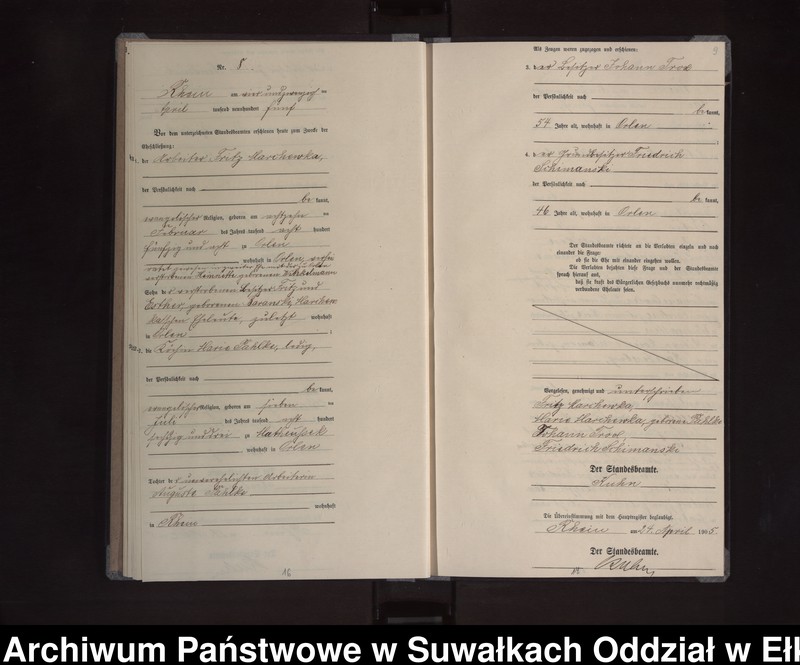 Nr. 8.
Rhein am vier und zwanzig ten
April tausend neunhundert fünf
Vor dem unterzeichneten Standesbeamten erschienen heute zum Zwecke der
Eheschließung:
1. der Arbeiter Fritz Marchewka,
der Persönlichkeit nach
be kannt,
evangelischer Religion, geboren am achtzehn ten
Februar des Jahres tausend acht hundert
fünfzig und acht zu Orlen
, wohnhaft in Orlen,
verstorbenen Henriette geborenen
Sohn des verstorbenen Besitzers Fritz und
Esther geborenen Marchew
kaschen Eheleute, zuletzt wohnhaft
in Orlen ;
2. die Köchin Marie Pahlke, ledig,
der Persönlichkeit nach
be kannt,
evangelischer Religion, geboren am sieben ten
Juli des Jahres tausend acht hundert
sechzig und zu
, wohnhaft in Orlen
Tochter der unverehelichten Arbeiterin
Auguste Pahlke
wohnhaft
in Rhein
16
9
Als Zeugen waren zugezogen und erschienen:
3. der Besitzer Johann Trox
der Persönlichkeit nach
be kannt,
57 Jahre alt, wohnhaft in Orlen ;
4. der Grundbesitzer Friedrich
Schimanski
der Persönlichkeit nach
be kannt,
46 Jahre alt, wohnhaft in Orlen
Der Standesbeamte richtete an die Verlobten einzeln und nach
einander die Frage:
ob sie die Ehe mit einander eingehen wollen.
Die Verlobten bejahten diese Frage und der Standesbeamte
sprach hierauf aus,
daß sie kraft des Bürgerlichen Gesetzbuchs nunmehr rechtmäßig
verbundene Eheleute seien.
Vorgelesen, genehmigt und unterschrieben
Fritz Marchewka,
Marie Marchewka, geborene Pahlke
Johann Trox
Friedrich Schimanski
Der Standesbeamte.
Kuhn
Die Übereinstimmung mit dem Hauptregister beglaubigt.
Rhein am 24. April 1905.
Der Standesbeamte.
Kuhn
Archiwum Państwowe w Suwałkach Oddział w Ełk